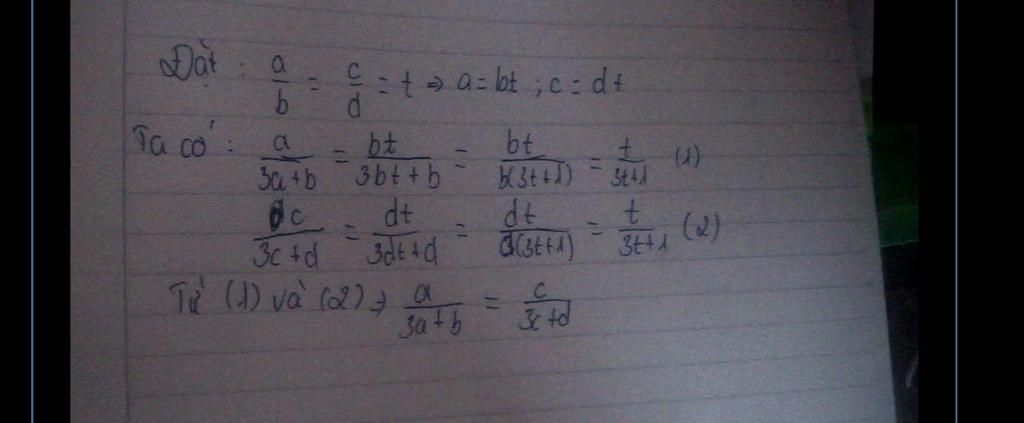 Đặt : a/b = c/d = t ⇒ a = bt ; c = dt
Ta có : a/(3a+b) = bt/(3bt+b) = bt/(b(3t+1)) = t/(3t+1) (1)
c/(3c+d) = dt/(3dt+d) = dt/(d(3t+1)) = t/(3t+1) (2)
Từ (1) và (2) ⇒ a/(3a+b) = c/(3c+d)